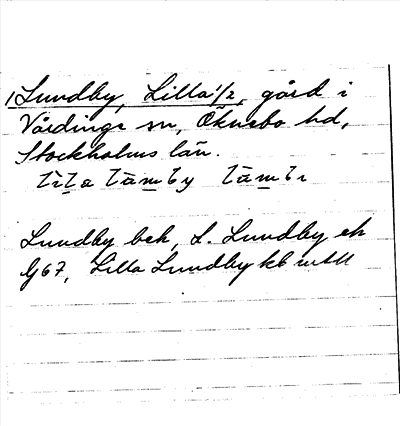 1 Lundby, Lilla 1/2, gård i
Vårdinge sn, Öknebo hd,
Stockholms län.
Lundby bek, L. Lundby ek
G67, Lilla Lundby kb